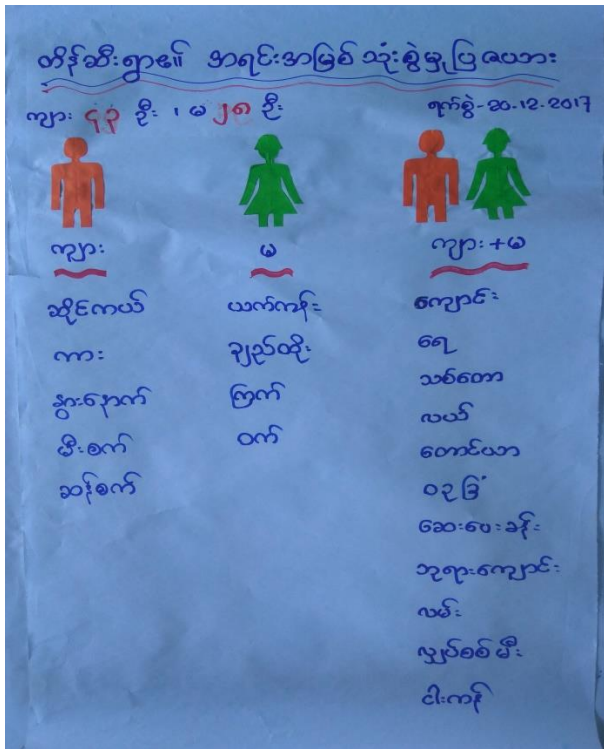 တိန်ဆီးရွာ၏ အရင်းအမြစ်သုံးစွဲမှုပြဇယား
ကျား ၄၃ ဦး ၊ မ ၂၈ ဦး ရက်စွဲ-20.12.2017
ကျား
ဆိုင်ကယ်
ကား
နွားနောက်
မီးစက်
ဆန်စက်
မ
ယက်ကန်း
ချည်ထိုး
ကြက်
ဝက်
ကျား+မ
ကျောင်း
ရေ
သစ်တော
လယ်
တောင်ယာ
ဝဥခြံ
ဆေးပေးခန်း
ဘုရားကျောင်း
လမ်း
လျှပ်စစ်မီး
ငါးကန်